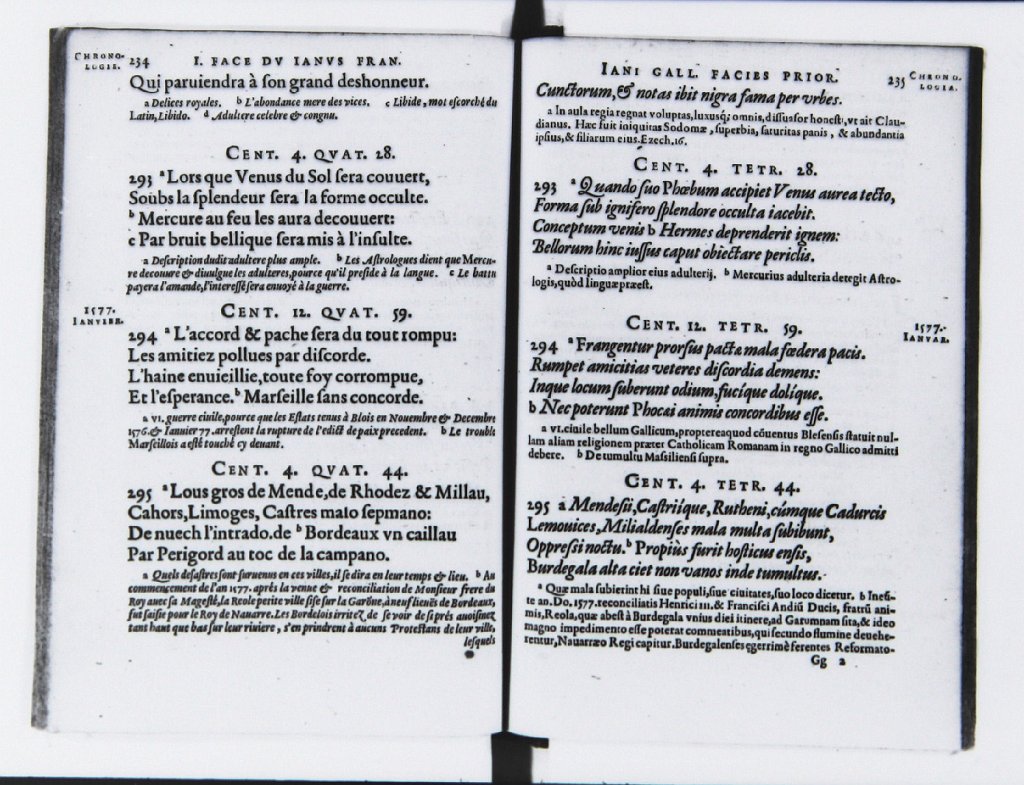 CHRONO-
LOGIE.
234
I. FACE DV IANVS FRAN.
Qui paruiendra à ſon grand deshonneur.
a Delices royales. b L'abondance mere des vices. c Libide, mot eſcorché du
Latin, Libido. d Adultere celebre & congnu.
CENT. 4. QVAT. 28.
293 a Lors que Venus du Sol ſera couuert,
Soubs la ſplendeur ſera la forme occulte.
b Mercure au feu les aura decouuert:
c Par bruit bellique ſera mis à l'inſulte.
a Deſcription dudit adultere plus ample. b Les Aſtrologues dient que Mercu-
re decouure & diuulgue les adulteres, pource qu'il preſide à la langue. c Le battu
payera l'amande, l'intereſſé ſera enuoyé à la guerre.
1577.
IANVIER.
CENT. 12. QVAT. 59.
294 a L'accord & pache ſera du tout rompu:
Les amitiez pollues par diſcorde.
L'haine enuieillie, toute foy corrompue,
Et l'eſperance. b Marſeille ſans concorde.
a VI. guerre ciuile, pource que les Eſtats tenus à Blois en Nouembre & Decembre
1576. & Ianuier 77. arreſtent la rupture de l'edict de paix precedent. b Le trouble
Marſeillois a eſté touché cy deuant.
CENT. 4. QVAT. 44.
295 a Lous gros de Mende, de Rhodez & Millau,
Cahors, Limoges, Caſtres malo ſepmano:
De nuech l'intrado. de b Bordeaux vn caillau
Par Perigord au toc de la campano.
a Quels deſaſtres ſont ſuruenus en ces villes, il ſe dira en leur temps & lieu. b Au
commencement de l'an 1577. apres la venue & reconciliation de Monſieur frere du
Roy auec ſa Mageſté, la Reole petite ville ſiſe ſur la Garōne, à neuf lieuës de Bordeaux,
fut ſaiſie pour le Roy de Nauarre. Les Bordelois irritez de ſe voir de ſi prés auoiſinez
tant haut que bas ſur leur riuiere, s'en prindrent à aucuns Proteſtans de leur ville,
leſquels
IANI GALL. FACIES PRIOR.
235
CHRONO-
LOGIA.
Cunctorum, & notas ibit nigra fama per vrbes.
a In aula regia regnat voluptas, luxuſq; omnis, diſſuaſor honeſti, vt ait Clau-
dianus. Hæc fuit iniquitas Sodomæ, ſuperbia, ſaturitas panis, & abundantia
ipſius, & filiarum eius. Ezech. 16.
CENT. 4. TETR. 28.
293 a Quando ſuo Phœbum accipiet Venus aurea tecto,
Forma ſub ignifero ſplendore occulta iacebit.
Conceptum venis b Hermes deprenderit ignem:
Bellorum hinc iuſſus caput obiectare periclis.
a Deſcriptio amplior eius adulterij. b Mercurius adulteria detegit Aſtro-
logis, quòd linguæ præeſt.
CENT. 12. TETR. 59.
1577.
IANVAR.
294 a Frangentur prorſus pacta mala fœdera pacis.
Rumpet amicitias veteres diſcordia demens:
Inque locum ſuberunt odium, fucíque dolíque.
b Nec poterunt Phocai animis concordibus eſſe.
a VI. ciuile bellum Gallicum, proptereaquod cōuentus Bleſenſis ſtatuit nul-
lam aliam religionem præter Catholicam Romanam in regno Gallico admitti
debere. b De tumultu Maſſilienſi ſupra.
CENT. 4. TETR. 44.
295 a Mendeſii, Caſtriíque, Rutheni, cúmque Cadurcis
Lemouices, Milialdenſes mala multa ſubibunt,
Oppreſsi noctu. b Propiùs furit hoſticus enſis,
Burdegala alta ciet non vanos inde tumultus.
a Quæ mala ſubierint hi ſiue populi, ſiue ciuitates, ſuo loco dicetur. b Ineū-
te an. Do. 1577. reconciliatis Henrici III. & Franciſci Andiū Ducis, fratrū ani-
mis, Reola, quæ abeſt à Burdegala vnius diei itinere, ad Garumnam ſita, & ideo
magno impedimento eſſe poterat commeatibus, qui ſecundo flumine deuehe-
rentur, Nauarræo Regi capitur. Burdegalenſes ęgerrimè ferentes Reformato-
Gg 2